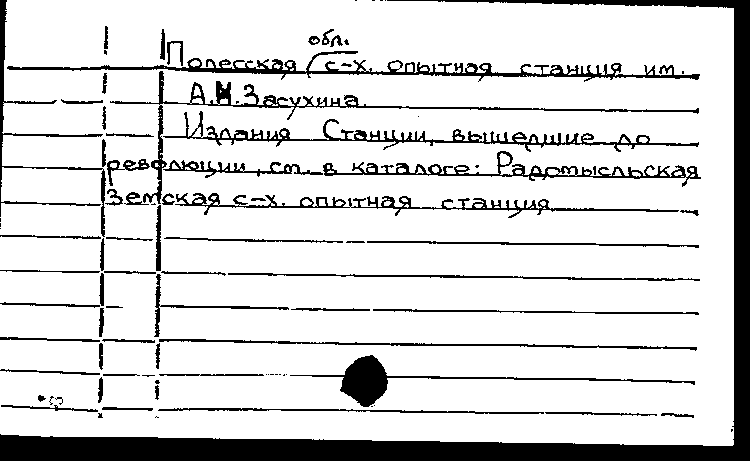 обл.
Полесская с-х. опытная станция им.
А.Н.Засухина.
Издания Станции, вышедшие до
революции, см. в каталоге: Радомысльская
Земская с-х. опытная станция